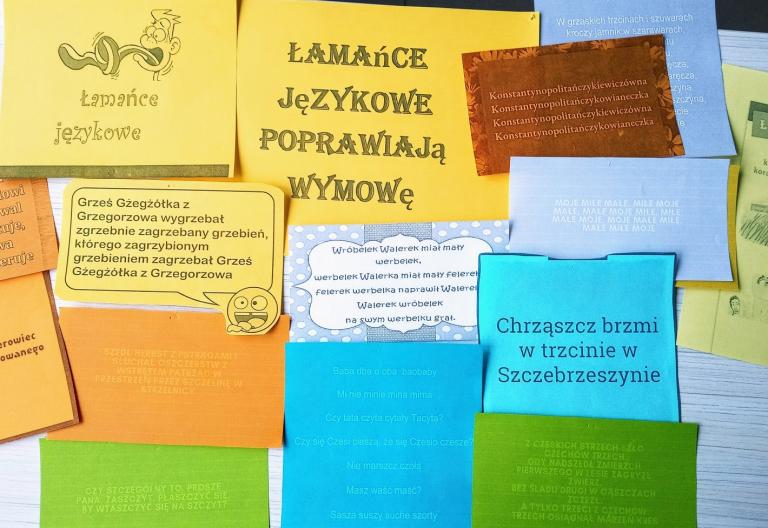 Łamańce
językowe
ŁAMAńCE
JęZYKOWE
POPRAWIAJą
WYMOWę
W grząskich trzcinach i szuwarach
kroczy jamnik w szarawarach,
Konstantynopolitańczykiewiczówna
Konstantynopolitańczykowianeczka
Konstantynopolitańczykiewiczówna
Konstantynopolitańczykowianeczka
Grześ Gżegżółka z
Grzegorzowa wygrzebał
zgrzebnie zagrzebany grzebień,
którego zagrzybionym
grzebieniem zagrzebał Grześ
Gżegżółka z Grzegorzowa
Wróbelek Walerek miał mały
werbelek,
werbelek Walerka miał mały felerek
felerek werbelka naprawił Walerek
Walerek wróbelek
na swym werbelku grał.
MOJE MIŁE MAŁE, MIŁE MOJE
MAŁE, MAŁE MOJE MIŁE, MIŁE,
MAŁE, MIŁE MOJE
Chrząszcz brzmi
w trzcinie w
Szczebrzeszynie
SZEDŁ HERBST Z PSTRĄGAMI I
SŁUCHAŁ OSZCZERSTW Z
WSTRĘTEM PATRZĄC W
PRZESTRZEŃ PRZEZ SZCZELINĘ W
STRZELNICY
Baba dba o oba baobaby
Mi nie minie mina mima
Czy tata czyta cytaty Tacyta?
Czy się Czesi cieszą, że się Czesio czesze?
Nie marszcz czoła
Masz waść maść?
Sasza suszy suche szorty
CZY SZCZEGÓLNY TO, PROSZĘ
PANA, ZASZCZYT, PŁASZCZYĆ SIĘ,
BY WTASZCZYĆ SIĘ NA SZCZYT?
Z CZESKICH STRZECH SZŁO
CZECHÓW TRZECH,
GDY NADSZEDŁ ZMIERZCH,
PIERWSZEGO W LESIE ZAGRYZŁ
ZWIERZ,
BEZ ŚLADU DRUGI W GĄSZCZACH
SCZEZŁ,
A TYLKO TRZECI Z CZECHÓW
TRZECH OSIĄGNĄŁ MARZEŃ KRES